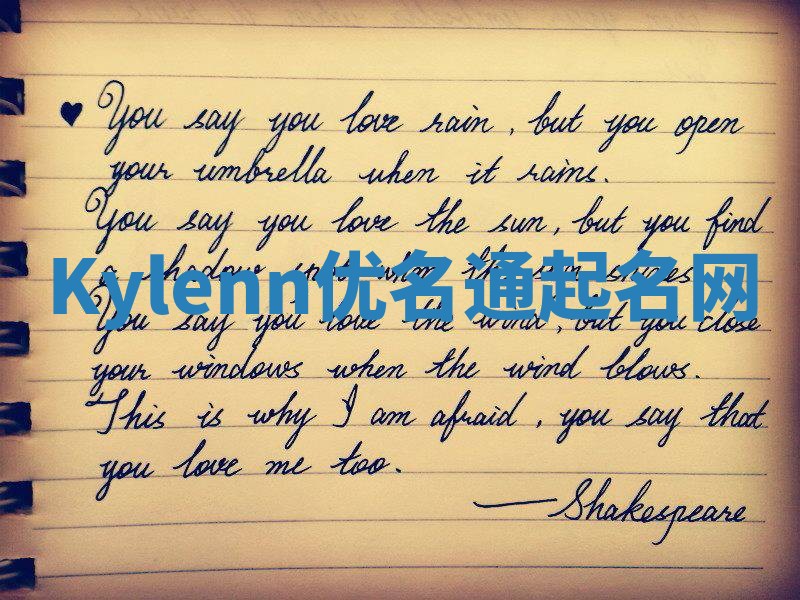 ♥ You say you love rain, but you open
your umbrella when it rains.
You say you love the sun, but you find
a shadow spot when the sun shines.
Kylenn优名通起名网
You say you love the wind, but you close
your windows when the wind blows.
This is why I am afraid, you say that
you love me too.
—Shakespeare